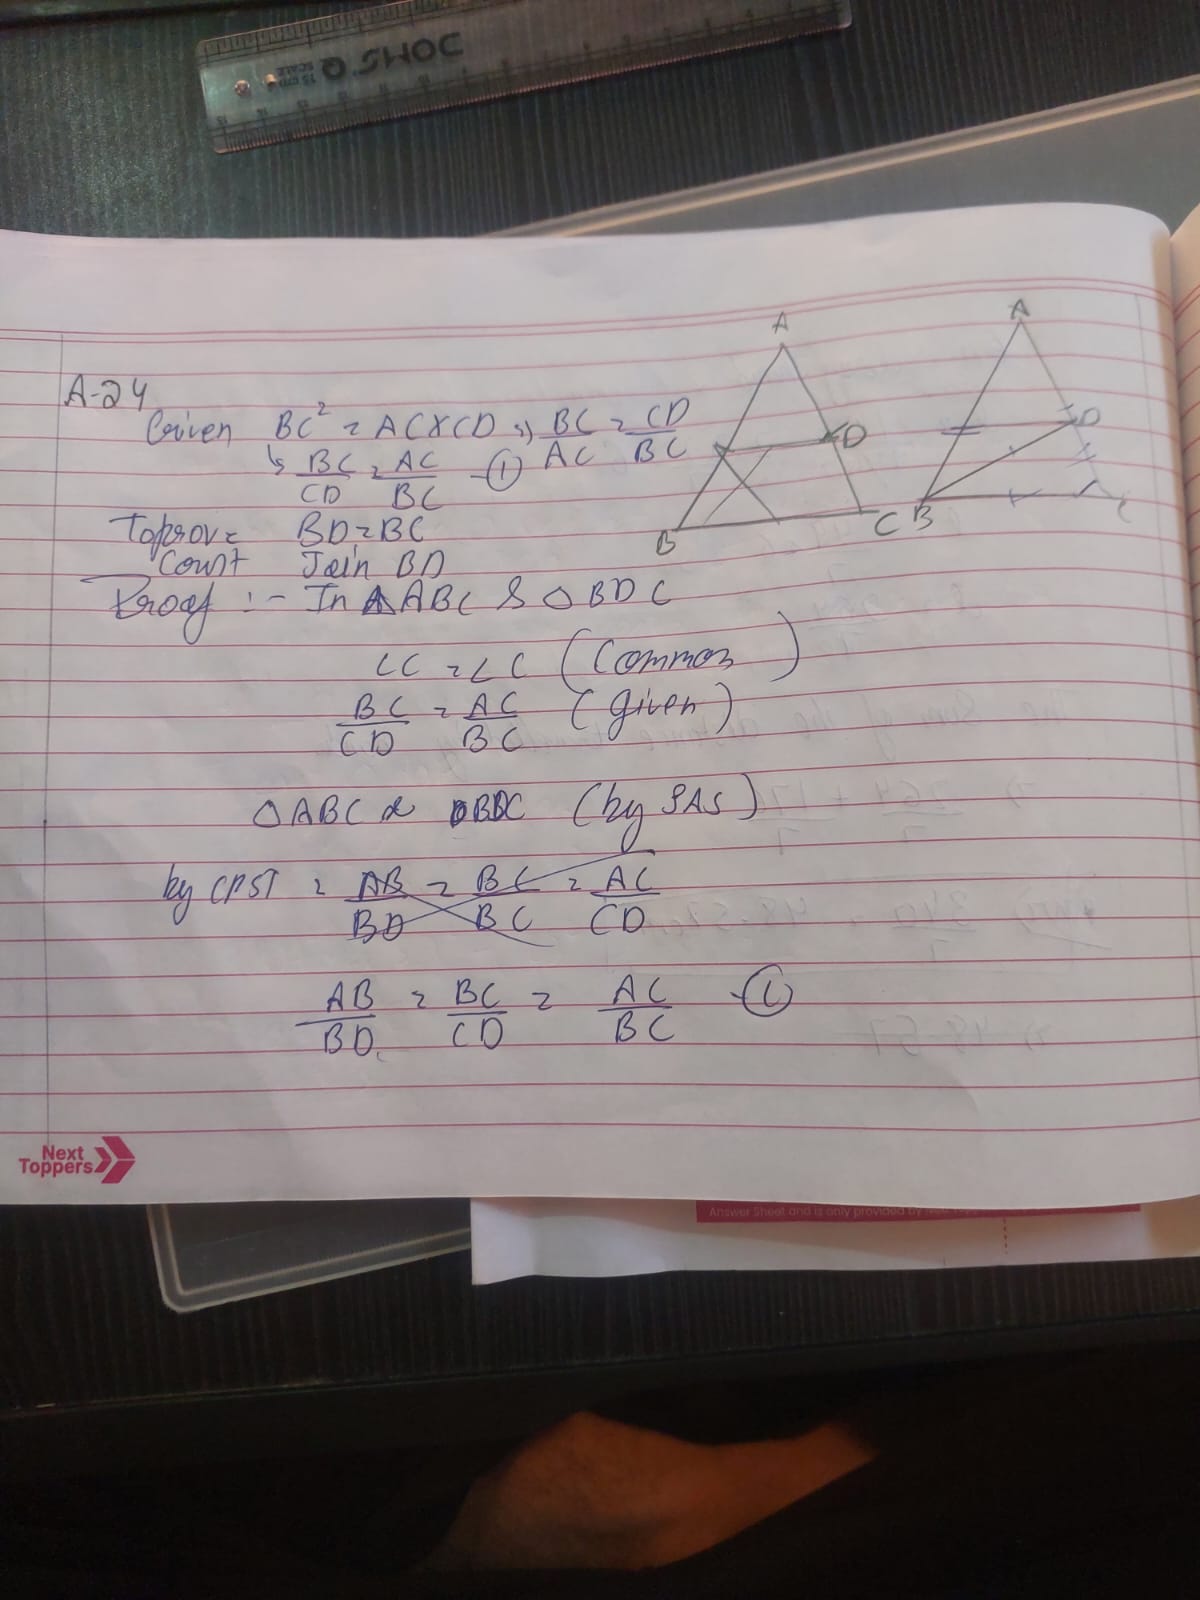 DOMS Q
15 cm
SCALE
A-24
Given BC² = AC×CD ⇒ BC/AC = CD/BC
↳ BC/CD = AC/BC -①
A
D
B
C
A
D
B
C
Toprove BD=BC
Const Join BD
Proof :- In △ABC & △BDC
∠C = ∠C (Common)
BC/CD = AC/BC (given)
△ABC ~ △BDC (by SAS)
by CPST = AB/BD = BC/BC = AC/CD
AB/BD = BC/CD = AC/BC -①
Next
Toppers
Answer Sheet and is only provided by